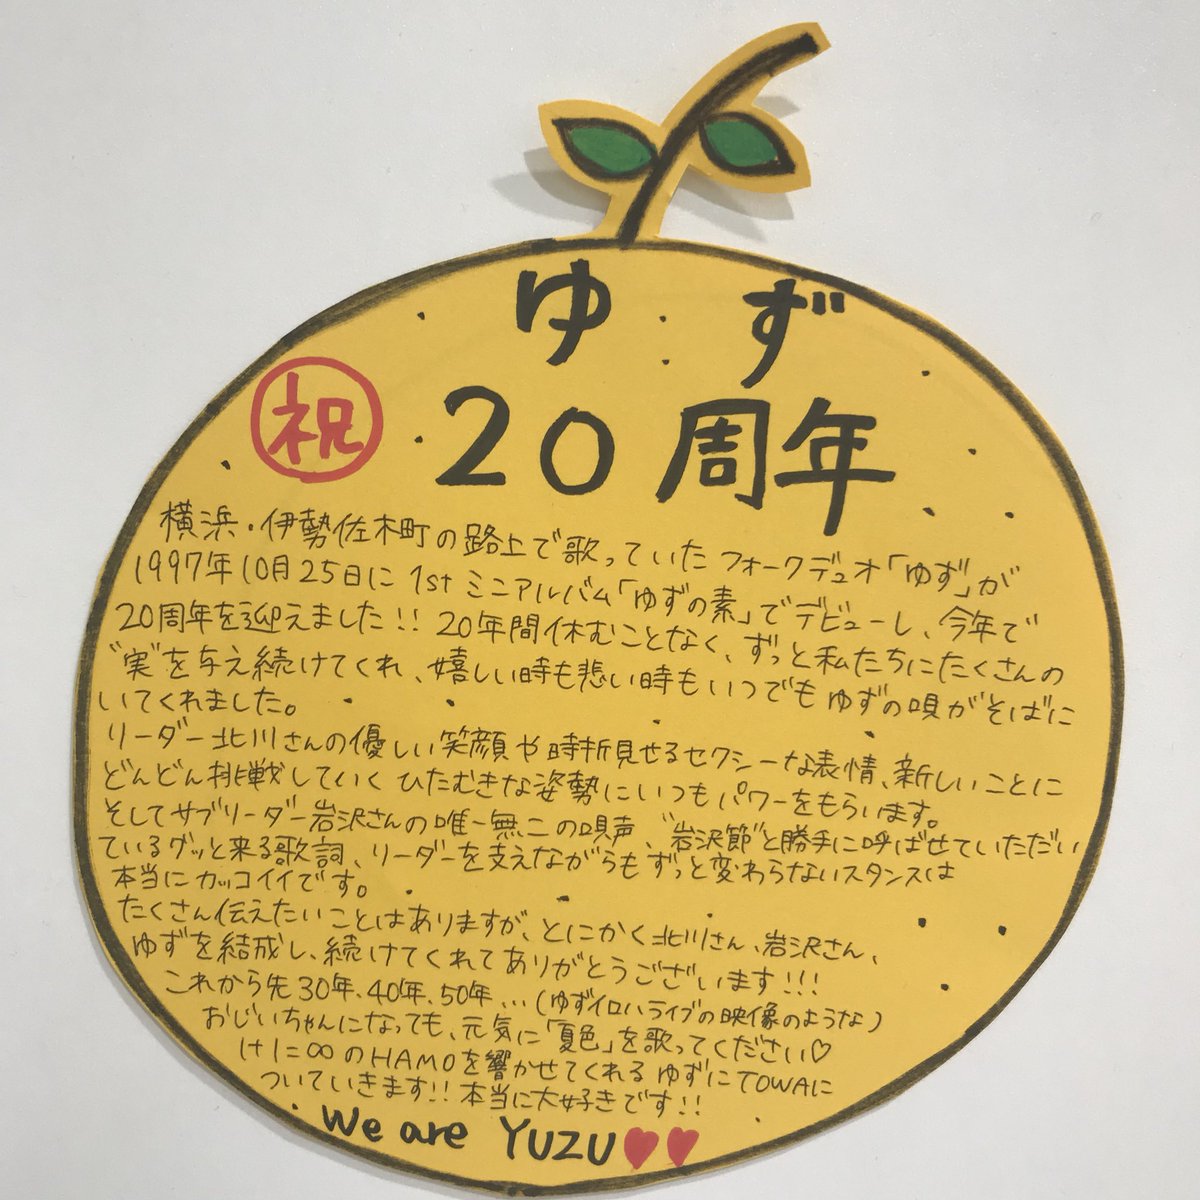 ゆず
㊗ 20周年
横浜・伊勢佐木町の路上で歌っていたフォークデュオ「ゆず」が
1997年10月25日に1stミニアルバム「ゆずの素」でデビューし、今年で
20周年を迎えました!! 20年間休むことなく、ずっと私たちにたくさんの
"実"を与え続けてくれ、嬉しい時も悲い時もいつでもゆずの唄がそばに
いてくれました。
リーダー北川さんの優しい笑顔や時折見せるセクシーな表情、新しいことに
どんどん挑戦していくひたむきな姿勢にいつもパワーをもらいます。
そしてサブリーダー岩沢さんの唯一無二の唄声、"岩沢節"と勝手に呼ばせていただい
ているグッと来る歌詞、リーダーを支えながらもずっと変わらないスタンスは
本当にカッコイイです。
たくさん伝えたいことはありますが、とにかく北川さん、岩沢さん、
ゆずを結成し、続けてくれてありがとうございます!!!
これから先30年、40年、50年…(ゆずイロハライブの映像のような)
おじいちゃんになっても、元気に「夏色」を歌ってください♡
1+1=∞のHAMOを響かせてくれるゆずにTOWAに
ついていきます!! 本当に大好きです!!
We are YUZU♥♥